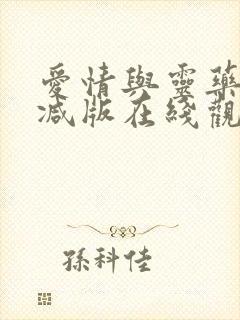 愛情與靈藥
减版在綫觀
孫科佳